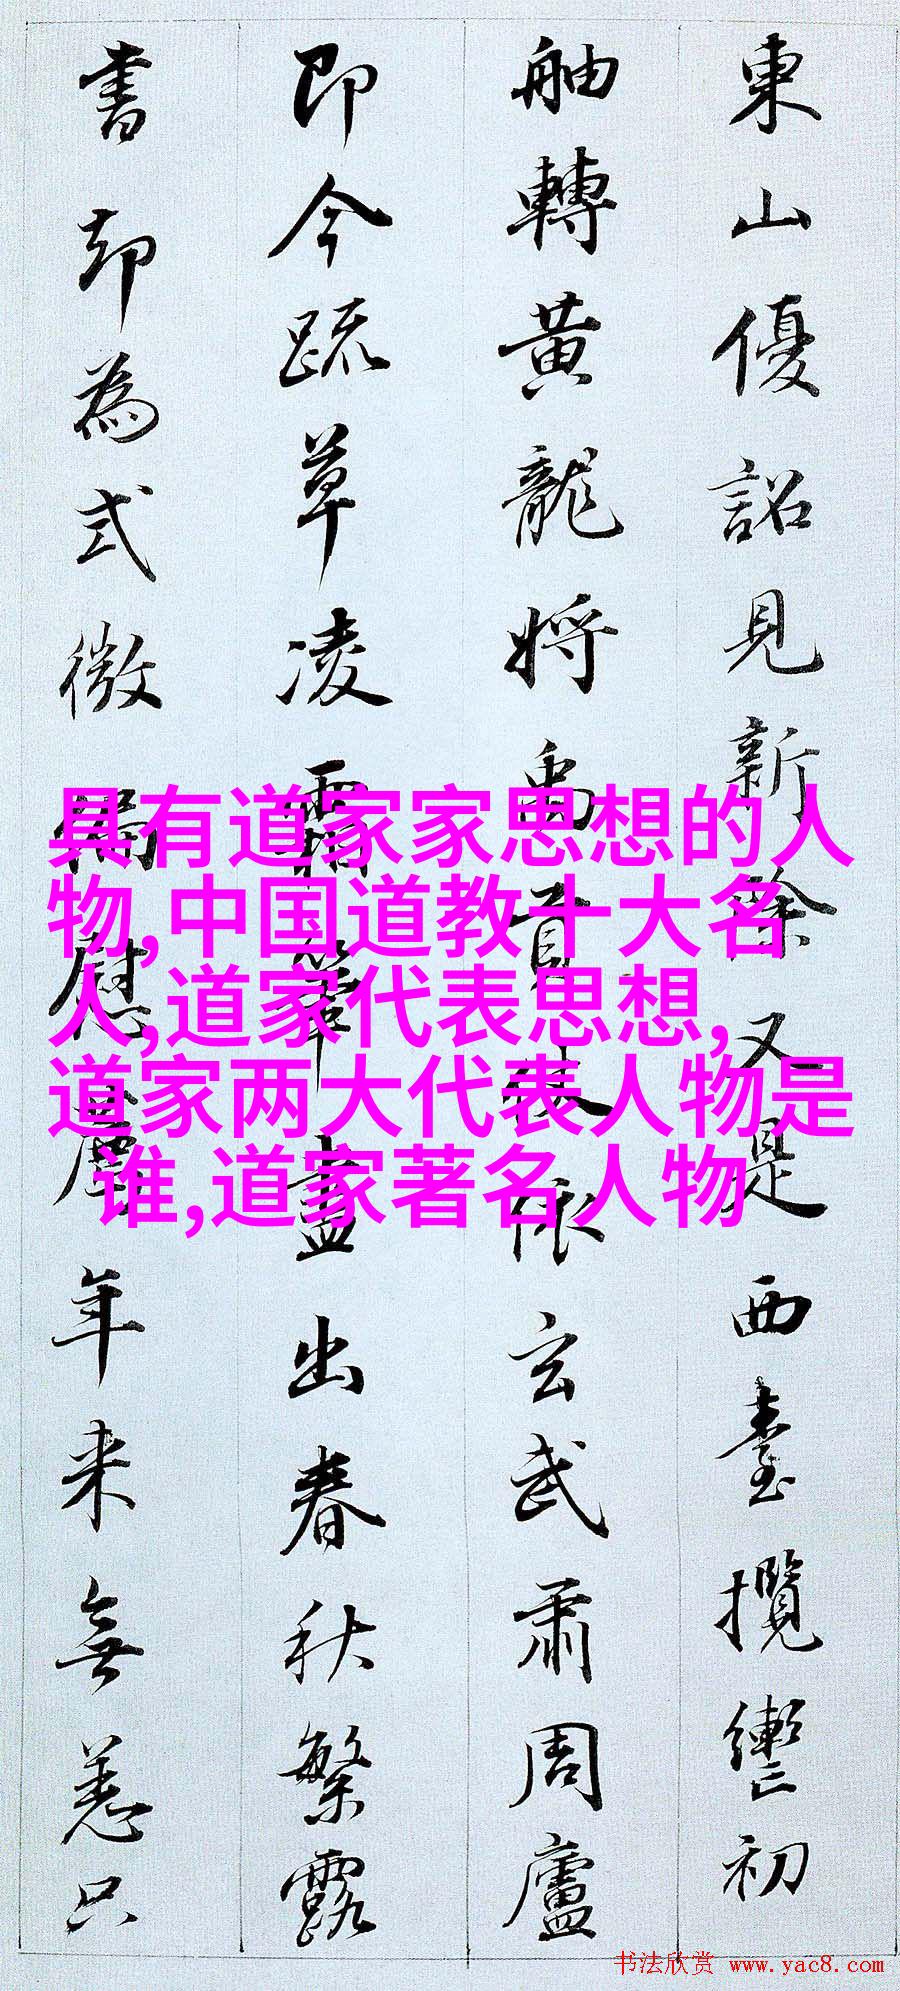 東山優詔見新除又是西臺攬轡初
舳轉黄龍将禹貢陕依玄武肅周廬
即今疏草凌霜筆畫出春秋繁露
書却為式微偏慰庭年来無恙只
具有道家家思想的人
物,中国道教十大名
人,道家代表思想,
道家两大代表人物是
谁,道家著名人物
书法欣赏 www.yac8.com